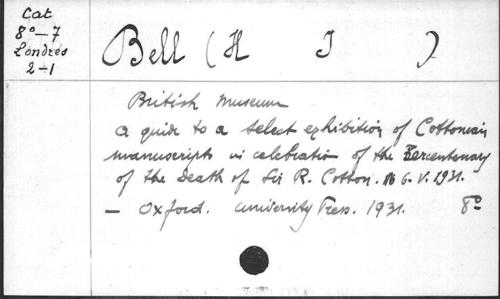 Cat
8°-7
Londres
2-1
Bell (H I )
British Museum
A guide to a select exhibition of Cottonian
manuscripts in celebration of the Tercentenary
of the death of Sir R. Cotton. 6. V. 1931.
— Oxford. University Press. 1931. 8°